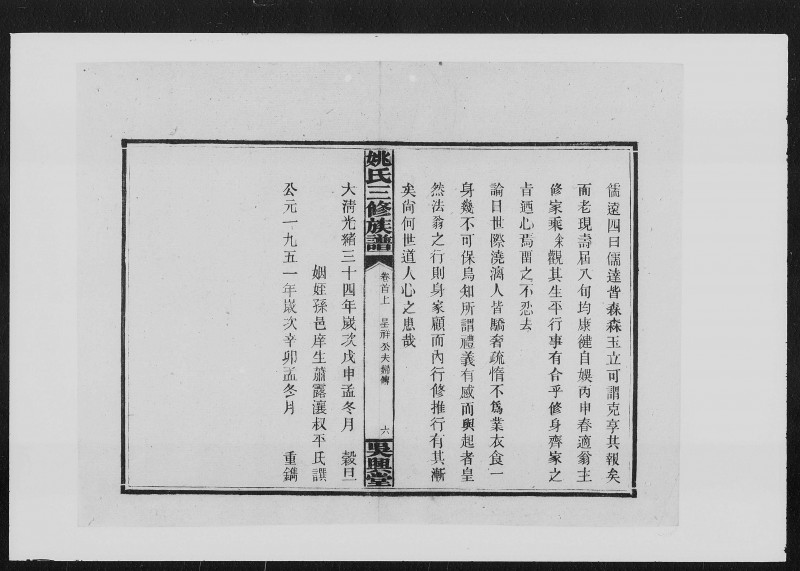 儒遠四曰儒達皆森森玉立可謂克享其報矣
而老現壽屆八旬均康健自娛丙申春適翁主
修家乘余觀其生平行事有合乎修身齊家之
旨迺心焉畱之不忍去
論曰世際澆漓人皆驕奢疏惰不為業衣食一
身幾不可保烏知所謂禮義有感而與起者皇
然法翁之行則身家顧而內行修推行有其漸
矣尚何世道人心之患哉
姚氏三修族譜
卷首上
星祥公夫婦傳
六
吳興堂
大淸光緒三十四年歲次戊申孟冬月 穀旦
姻姪孫邑庠生蕭露瀼叔平氏譔
公元一九五一年歲次辛卯孟冬月 重鐫